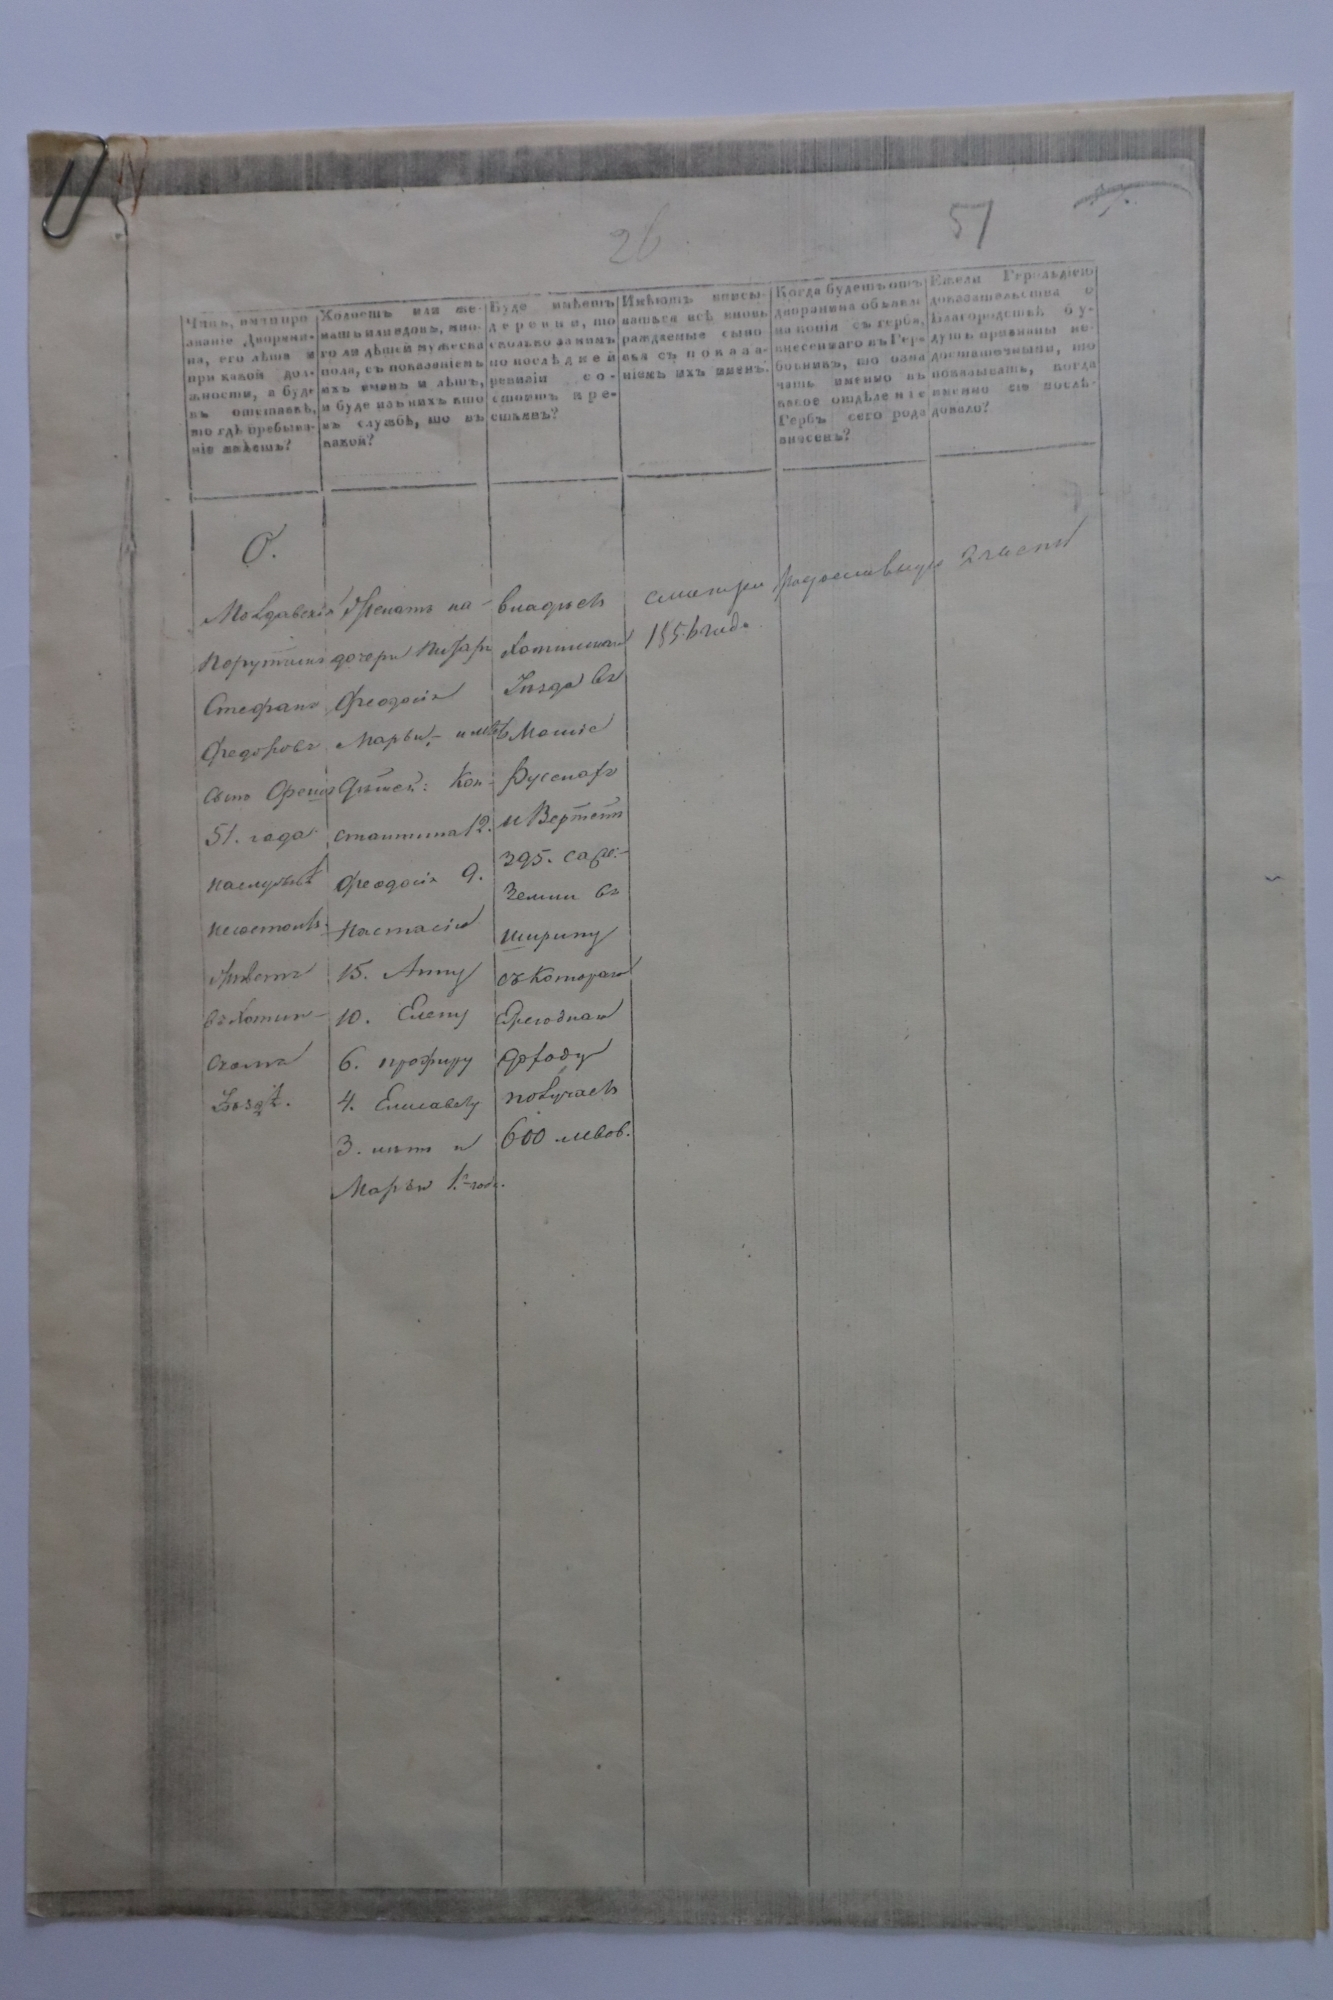 26
51
Чинъ, имя и про
званіе Дворяни-
на, его лѣша и
при какой дол-
жности, а буде
въ отставкѣ,
то гдѣ пребыва-
ніе имѣетъ?
Холостъ или же-
натъ или вдовъ, мно-
го ли дѣтей мужеска
пола, съ показаніемъ
ихъ именъ и лѣтъ,
и буде изъ нихъ кто
въ службѣ, то въ
какой?
Буде имѣетъ
деревни, то
сколько за нимъ
по послѣдней
ревизіи со-
стоитъ кре-
стьянъ?
Имѣютъ вписы-
ваться всѣ вновь
раждаемые сыно-
вья съ показа-
ніемъ ихъ именъ.
Когда будетъ отъ
дворянина объявле-
на копія съ герба,
внесеннаго въ Гер-
бовникъ, то озна-
чать именно въ
какое отдѣленіе
Гербъ сего рода
внесенъ?
Ежели Герольдіею
доказательства о
Благородствѣ бу-
дутъ признаны не-
достаточными, то
показывать, когда
именно сіе послѣ-
довало?
О.
Молдавскій
Порутчикъ
Стефанъ
Федоровъ
сынъ
51. года
въ Хотин-
скомъ
Уѣздѣ.
Женатъ на
дочери
Феодосія
Марьи,
дѣтей: Кон-
стантина 12.
Феодосія 9.
Настасію
15. Анну
10. Елену
6. профиру
4. Елисавету
3. лѣтъ и
Марью 1. года.
владѣетъ
Хотинскаго
Уѣзда въ
295. саже:
земли въ
ширину
съ котораго
доходу
получаетъ
600 левов.
смотри родословную 2 части
185 года